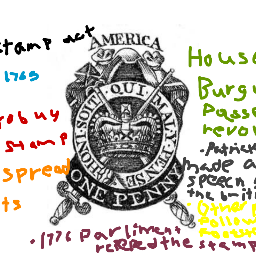 stamp act
1765
to buy
stamp
spread
AMERICA
HONI·SOIT·QUI·MAL·Y·PENSE
ONE PENNY
House
Burg
Passe
revo
·Patrick
made a
speech
the
Other
follow
·1776 Parliment
the stamp